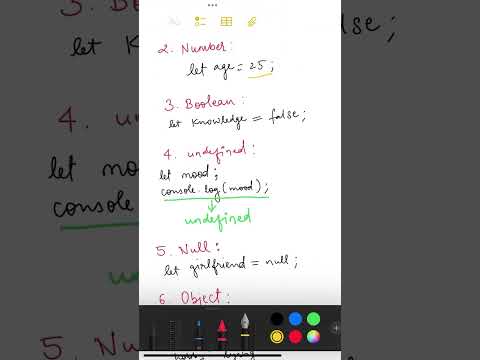 2. Number:
let age = 25;
3. Boolean:
let Knowledge = false;
4. undefined:
let mood;
console.log(mood);
undefined
5. Null:
let girlfriend = null;
6. Object: